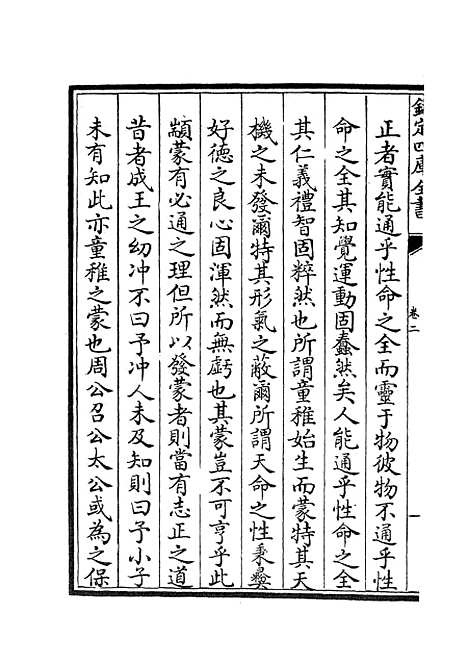 欽定四庫全書
卷二
正者實能通乎性命之全而靈于物彼物不通乎性
命之全其知覺運動固蠢然矣人能通乎性命之全
其仁義禮智固粹然也所謂童稚始生而蒙特其天
機之未發爾特其形氣之蔽爾所謂天命之性秉彛
好德之良心固渾然而無虧也其蒙豈不可亨乎此
顓蒙有必通之理但所以發蒙者則當有志正之道
昔者成王之幼冲不曰予冲人未及知則曰予小子
未有知此亦童稚之蒙也周公召公太公或為之保